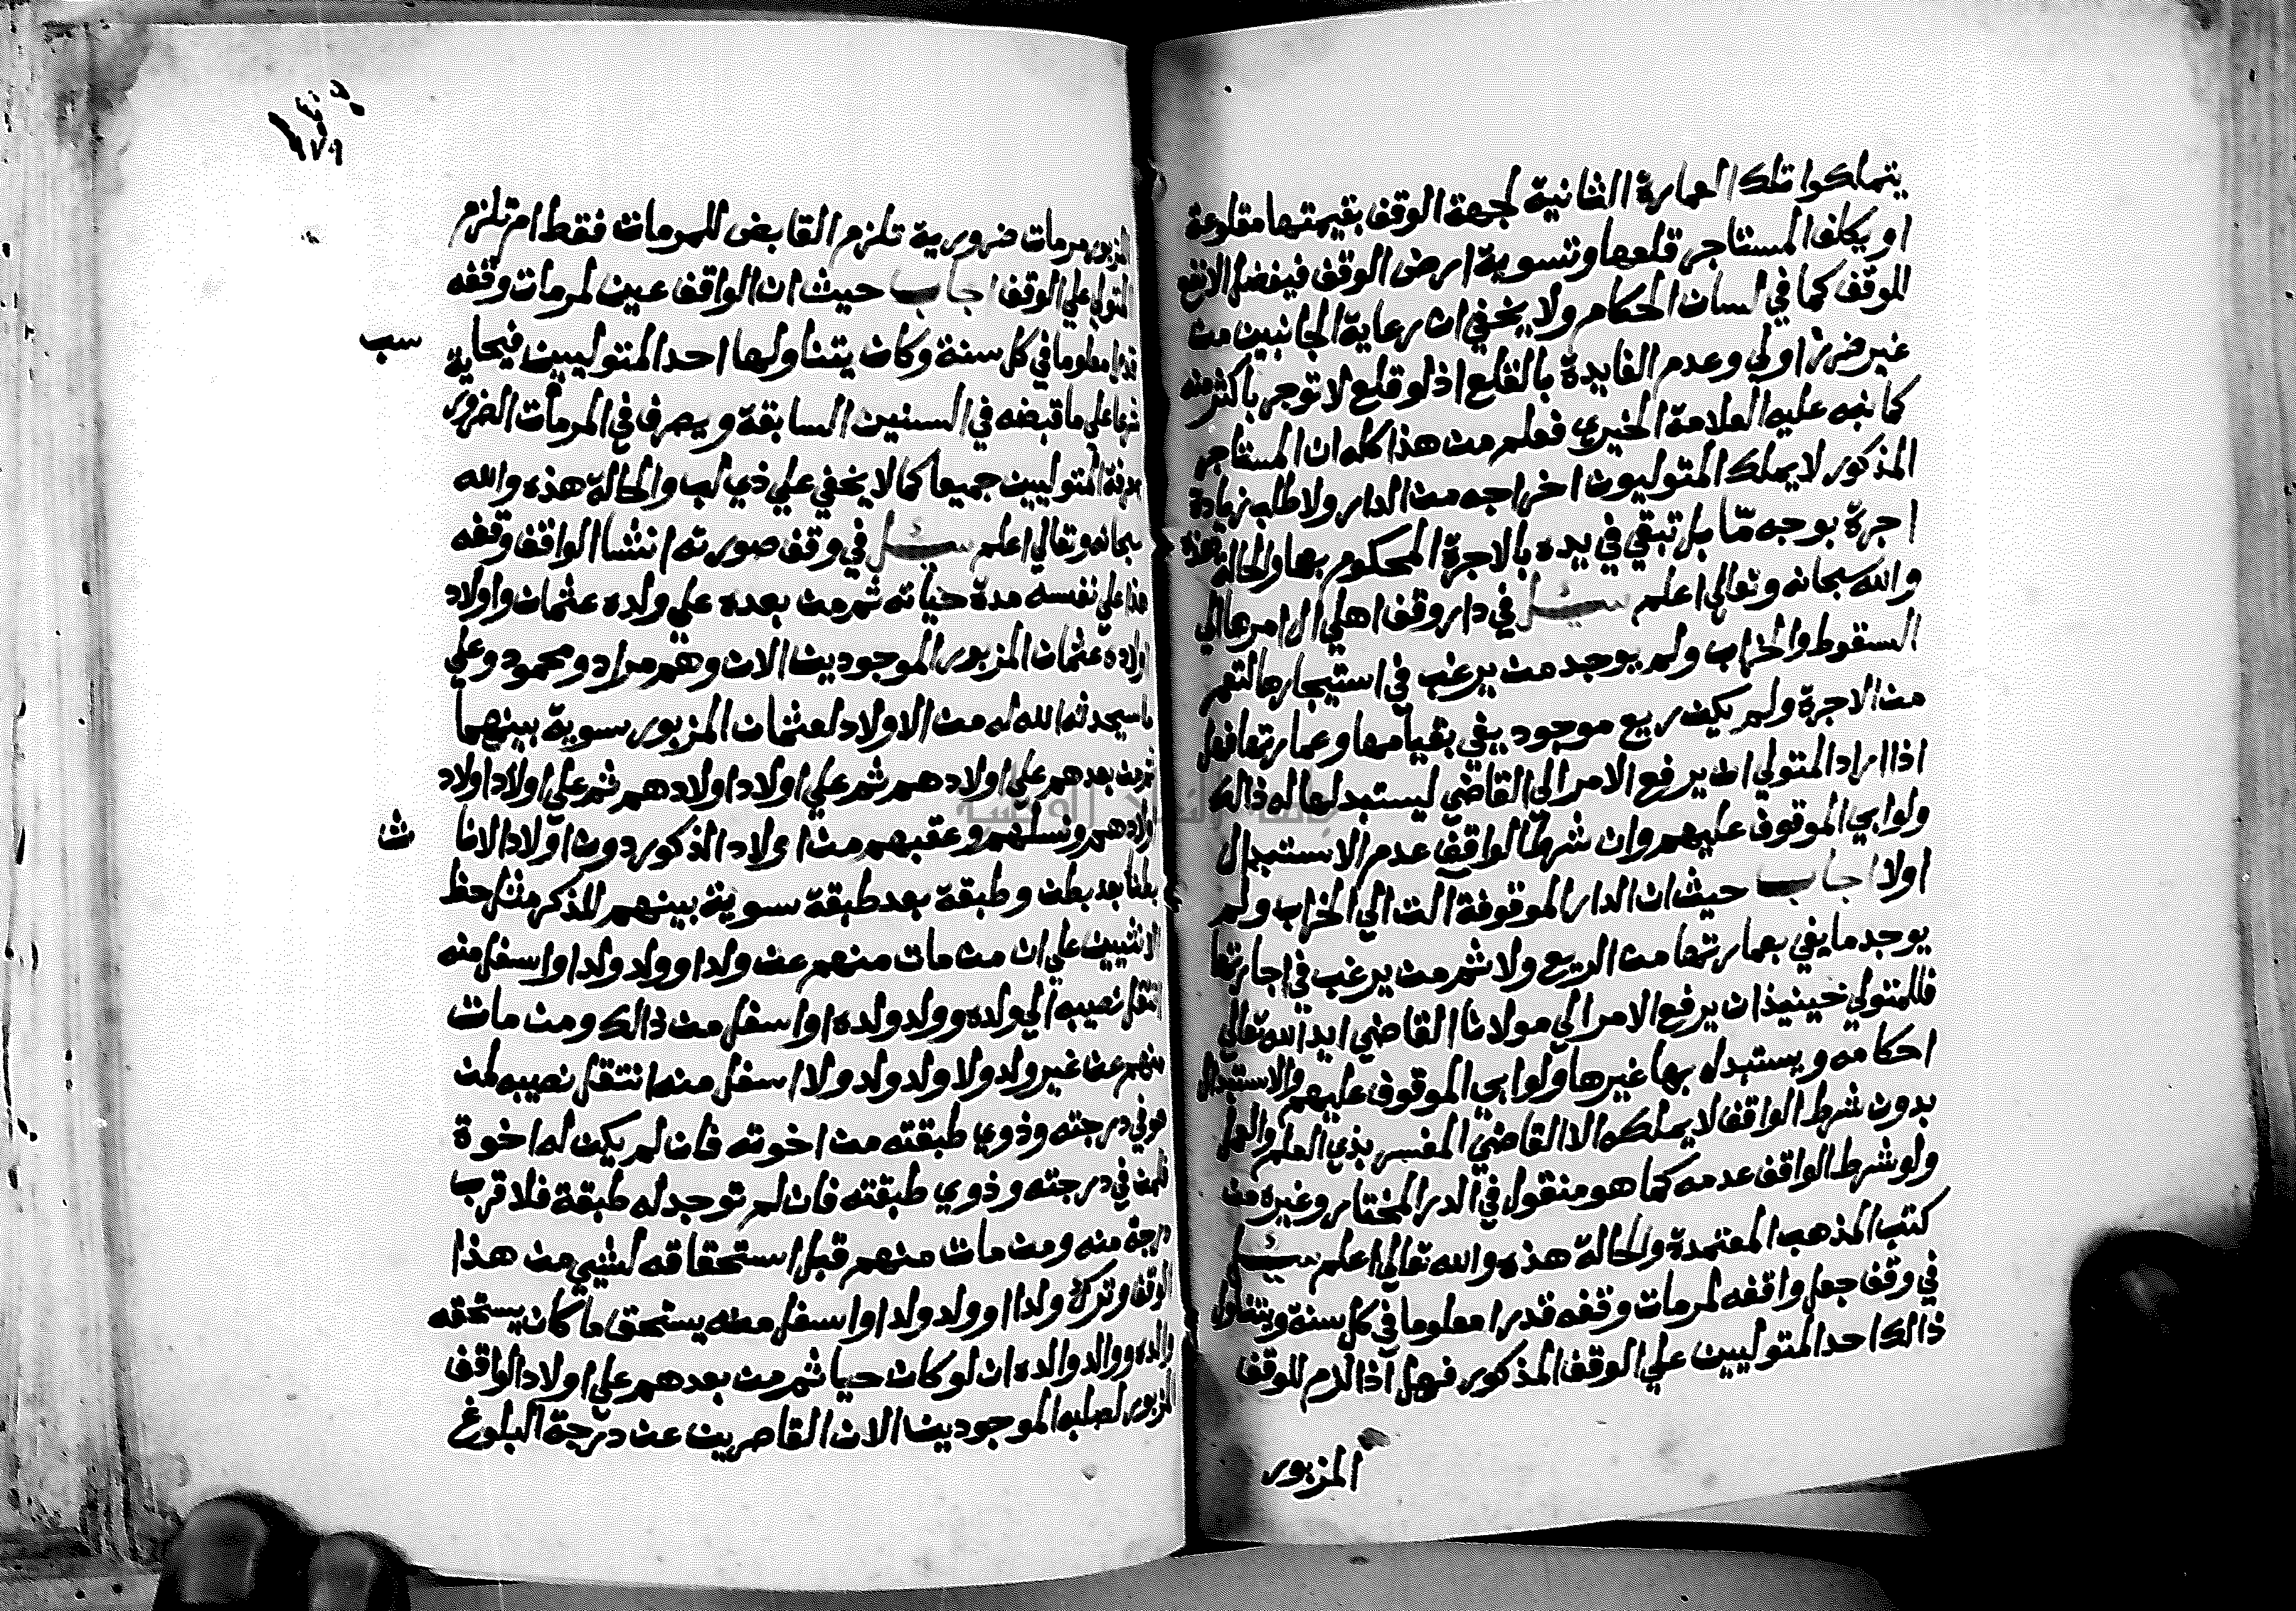 يتملكوا تلك العمارة الثانية لجهة الوقف بقيمتها مقلوعة
او يكلف المستاجر قلعها وتسوية ارض الوقف فيفضل الانفع
للوقف كما في لسان الحكام ولا يخفي ان رعاية الجانبين من
غير ضرر اولي وعدم الفايدة بالقلع اذ لو قلع لا توجر باكثر منه
كما نبه عليه العلامة الخيري فعلم من هذا كله ان المستاجر
المذكور لا يملك المتوليون اخراجه من الدار ولا طلب زيادة
اجرة بوجه مّا بل تبقي في يده بالاجرة المحكوم بها والحالة هذه
والله سبحانه وتعالي اعلم سئل في دار وقف اهلي ال امرها الي
السقوط والخراب ولم يوجد من يرغب في استيجارها لتعمر
من الاجرة ولم يكن ريع موجود يفي بقيامها وعمارتها فهل
اذا اراد المتولي ان يرفع الامر الي القاضي ليستبدلها له ذالك
ولو ابي الموقوف عليهم وان شرط الواقف عدم الاستبدال
اولا اجاب حيث ان الدار الموقوفة الت الي الخراب ولم
يوجد ما يفي بعمارتها من الريع ولا ثم من يرغب في اجارتها
فللمتولي حينيذ ان يرفع الامر الي مولانا القاضي ايد الله تعالي
احكامه ويستبدل بها غيرها ولو ابي الموقوف عليهم والاستبدال
بدون شرط الواقف لا يملكه الا القاضي المفسر بذي العلم والعمل
ولو شرط الواقف عدمه كما هو منقول في الدر المختار وغيره من
كتب المذهب المعتمدة والحالة هذه والله تعالي اعلم سئل
في وقف جعل واقفه لمرمات وقفه قدرا معلوما في كل سنة ويتناول
ذالك احد المتوليين علي الوقف المذكور فهل اذا لزم للوقف
المزبور
١٧٩
المزبور مرمات ضرورية تلزم القابض للمرمات فقط ام تلزم
المتولي علي الوقف اجاب حيث ان الواقف عين لمرمات وقفه
قدرا معلوما في كل سنة وكان يتناولها احد المتوليين فيحاسبه
شرعا علي ما قبضه في السنين السابقة ويصرف في المرمات الضروري
بمعرفة المتوليين جميعا كما لا يخفي علي ذي لب والحالة هذه والله
سبحانه وتعالي اعلم سئل في وقف صورته انشا الواقف وقفه
هذا علي نفسه مدة حياته ثم من بعده علي ولده عثمان واولاد
اولاده عثمان المزبور الموجودين الان وهم مراد ومحمود وعلي
ما سيحدثه الله له من الاولاد لعثمان المزبور سوية بينهما
ثم من بعدهم علي اولادهم ثم علي اولاد اولادهم ثم علي اولاد اولاد
اولادهم ونسلهم وعقبهم من اولاد الذكور دون اولاد الانا
ث
بطنا بعد بطن وطبقة بعد طبقة سوية بينهم للذكر مثل حظ
الانثيين علي ان من مات منهم عن ولد او ولد ولد او اسفل منه
انتقل نصيبه الي ولده وولد ولده او اسفل من ذالك ومن مات
منهم عن غير ولد ولا ولد ولد ولا اسفل منه انتقل نصيبه لمن
هو في درجته وذوي طبقته من اخوته فان لم يكن له اخوة
فلمن في درجته وذوي طبقته فان لم توجد له طبقة فلاقرب
درجة منه ومن مات منهم قبل استحقاقه لشي من هذا
الوقف وترك ولدا او ولد ولد او اسفل منه يستحق ما كان يستحقه
والده ووالد والده ان لو كان حيا ثم من بعدهم علي اولاد الواقف
المزبور لصلبه الموجودين الان القاصرين عن درجة البلوغ